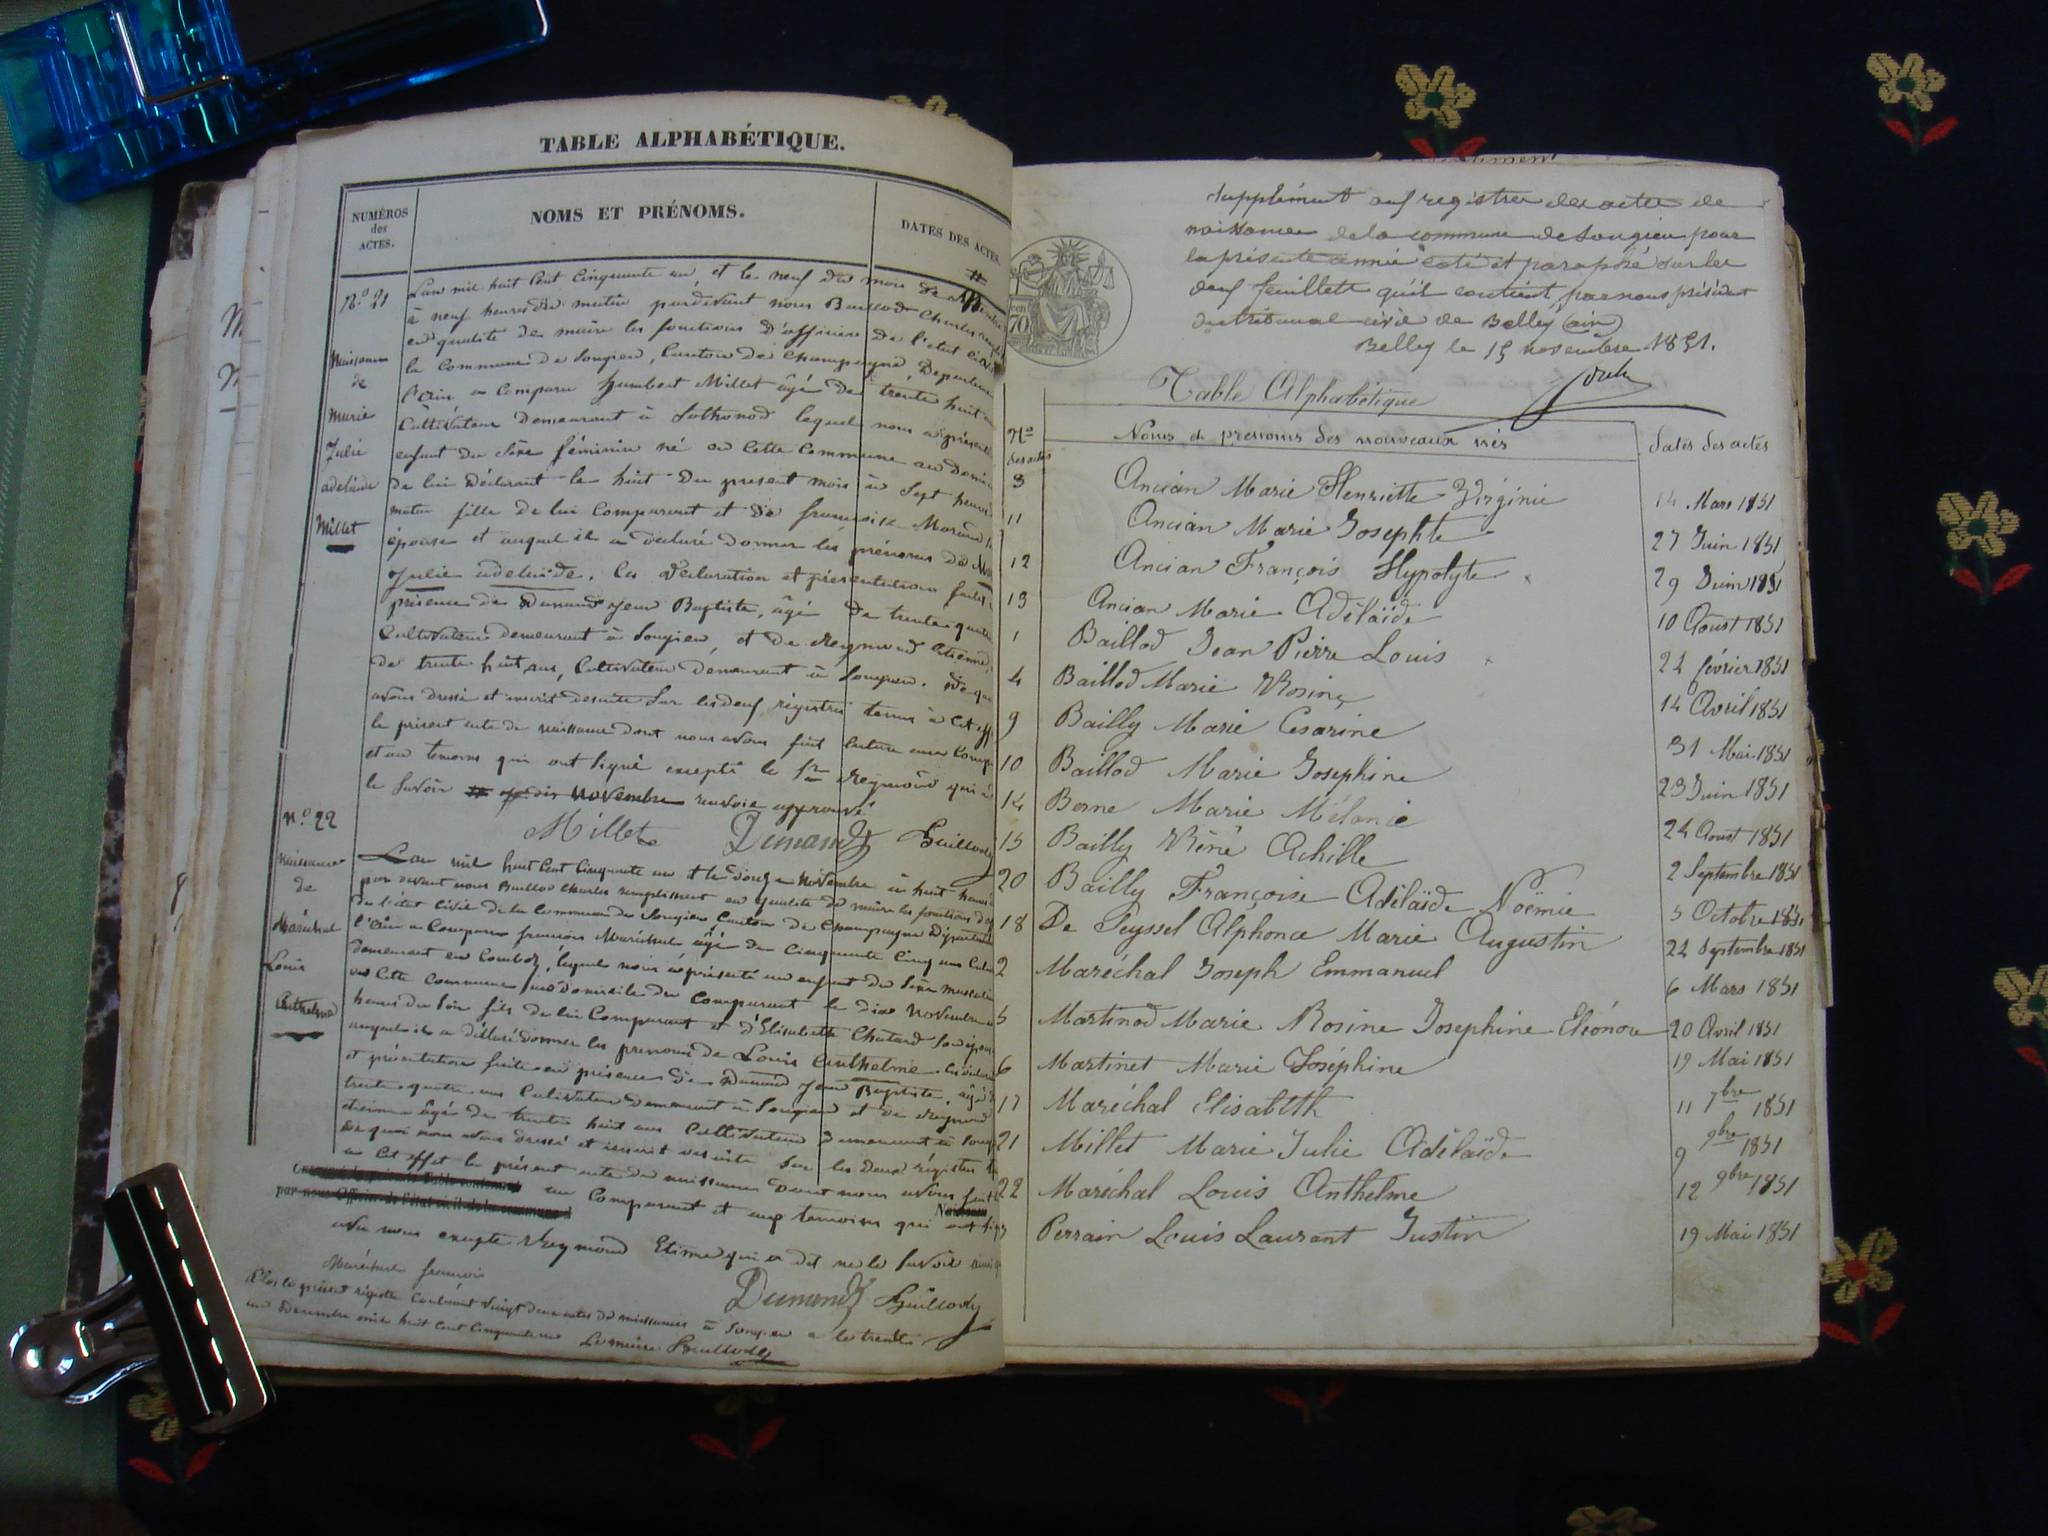 TABLE ALPHABÉTIQUE.
NUMÉROS
des
ACTES.
NOMS ET PRÉNOMS.
DATES DES ACTES.
N.o 21
Naissance
de
Marie
Julie
adelaide
Millet
L'an mil huit cent cinquante un, et le neuf du mois de
à neuf heures du matin pardevant nous Baillod Charles
en qualité de maire les fonctions d'officier de l'état civil
la Commune de Songieu, Canton de Champagne, Departement
l'ain a Comparu humbert Millet âgé de trente huit
Cultivateur demeurant à Sothonod lequel nous a présenté
enfant du sèxe féminin né en cette Commune au Domicile
de lui Déclarant le huit du present mois à sept heures
matin fille de lui Comparant et de françoise Morand
épouse et auquel il a declaré donner les prénoms de
Julie adelaide. les declaration et présentation faites
présence de Dumand Jean Baptiste, âgé de trente quatre
Cultivateur demeurant à Songieu, et de Reymond Etienne
de trente huit ans, Cultivateur demeurant à Songieu. De quoi
avons dressé et inscrit desuite sur les deux régistres tenus à cet effet
le présent acte de naissance dont nous avons fait lecture aux
et au temoins qui ont signé excepté le Sr Reymond qui a
le savoir novembre renvoie approuvé
Millet Dumand Baillod
n.o 22
Naissance
de
Maréchal
Louis
Anthelme
L'an mil huit cent cinquante un et le douze Novembre à huit heures
par devant nous Baillod Charles remplissant en qualité de maire les fonctions
de l'état civil de la Commune de Songieu Canton de Champagne Département
l'ain a Comparu françois Maréchal âgé de Cinquante Cinq ans
demeurant en lequel nous a présenté un enfant du sèxe masculin
en cette commune au Domicile du Comparant le dix Novembre
heures du soir fils de lui Comparant et d'Elisabeth Chatard son épouse
auquel il a déclaré donner les prenoms de Louis Anthelme. les
et présentation faite en présence de Dumand Jean Baptiste, âgé
trente quatre ans Cultivateur demeurant à Songieu et de Reymond
etienne âgé de trente huit ans Cultivateur demeurant à
De quoi nous avons dressé et inscrit desuite sur les deux régistres
à cet effet le présent acte de naissance dont nous avons fait
au Comparant et aux temoins qui ont signé
avec nous excepté Reymond Etienne qui a dit ne le savoir
Maréchal françois
Dumand Baillod
Clos le présent régistre Contenant vingt deux actes de naissances à Songieu le trente
un Decembre mil huit cent cinquante un Le maire Baillod
Supplément aux registres des actes de
naissance de la commune de Songieu pour
la présente année coté et paraphé sur les
deux feuillets qu'il contient, par nous président
du tribunal civil de Belley (ain)
Belley le 15 novembre 1851.
70
Table Alphabétique
No
des actes
Noms et prenoms des nouveaux nés
dates des actes
3 Ancian Marie Henriette Virginie 14 Mars 1851
11 Ancian Marie Josephte 27 Juin 1851
12 Ancian François Hypolyte 29 Juin 1851
13 Ancian Marie Adélaïde 10 Aoust 1851
1 Baillod Jean Pierre Louis 24 février 1851
4 Baillod Marie Rosine 14 Avril 1851
9 Bailly Marie Cesarine 31 Mai 1851
10 Baillod Marie Josephine 23 Juin 1851
14 Borne Marie Mélanie 24 Aoust 1851
15 Bailly Réné Achille 2 Septembre 1851
20 Bailly Françoise Adélaïde Noëmie 5 Octobre 1851
18 De Seyssel Alphonce Marie Augustin 22 Septembre 1851
2 Maréchal Joseph Emmanuel 6 Mars 1851
5 Martinod Marie Rosine Josephine Eléonore 20 Avril 1851
6 Martinet Marie Joséphine 19 Mai 1851
17 Maréchal Elisabeth 11 7bre 1851
21 Millet Marie Julie Adélaïde 9 9bre 1851
22 Maréchal Louis Anthelme 12 9bre 1851
Perrain Louis Laurant Justin 19 Mai 1851